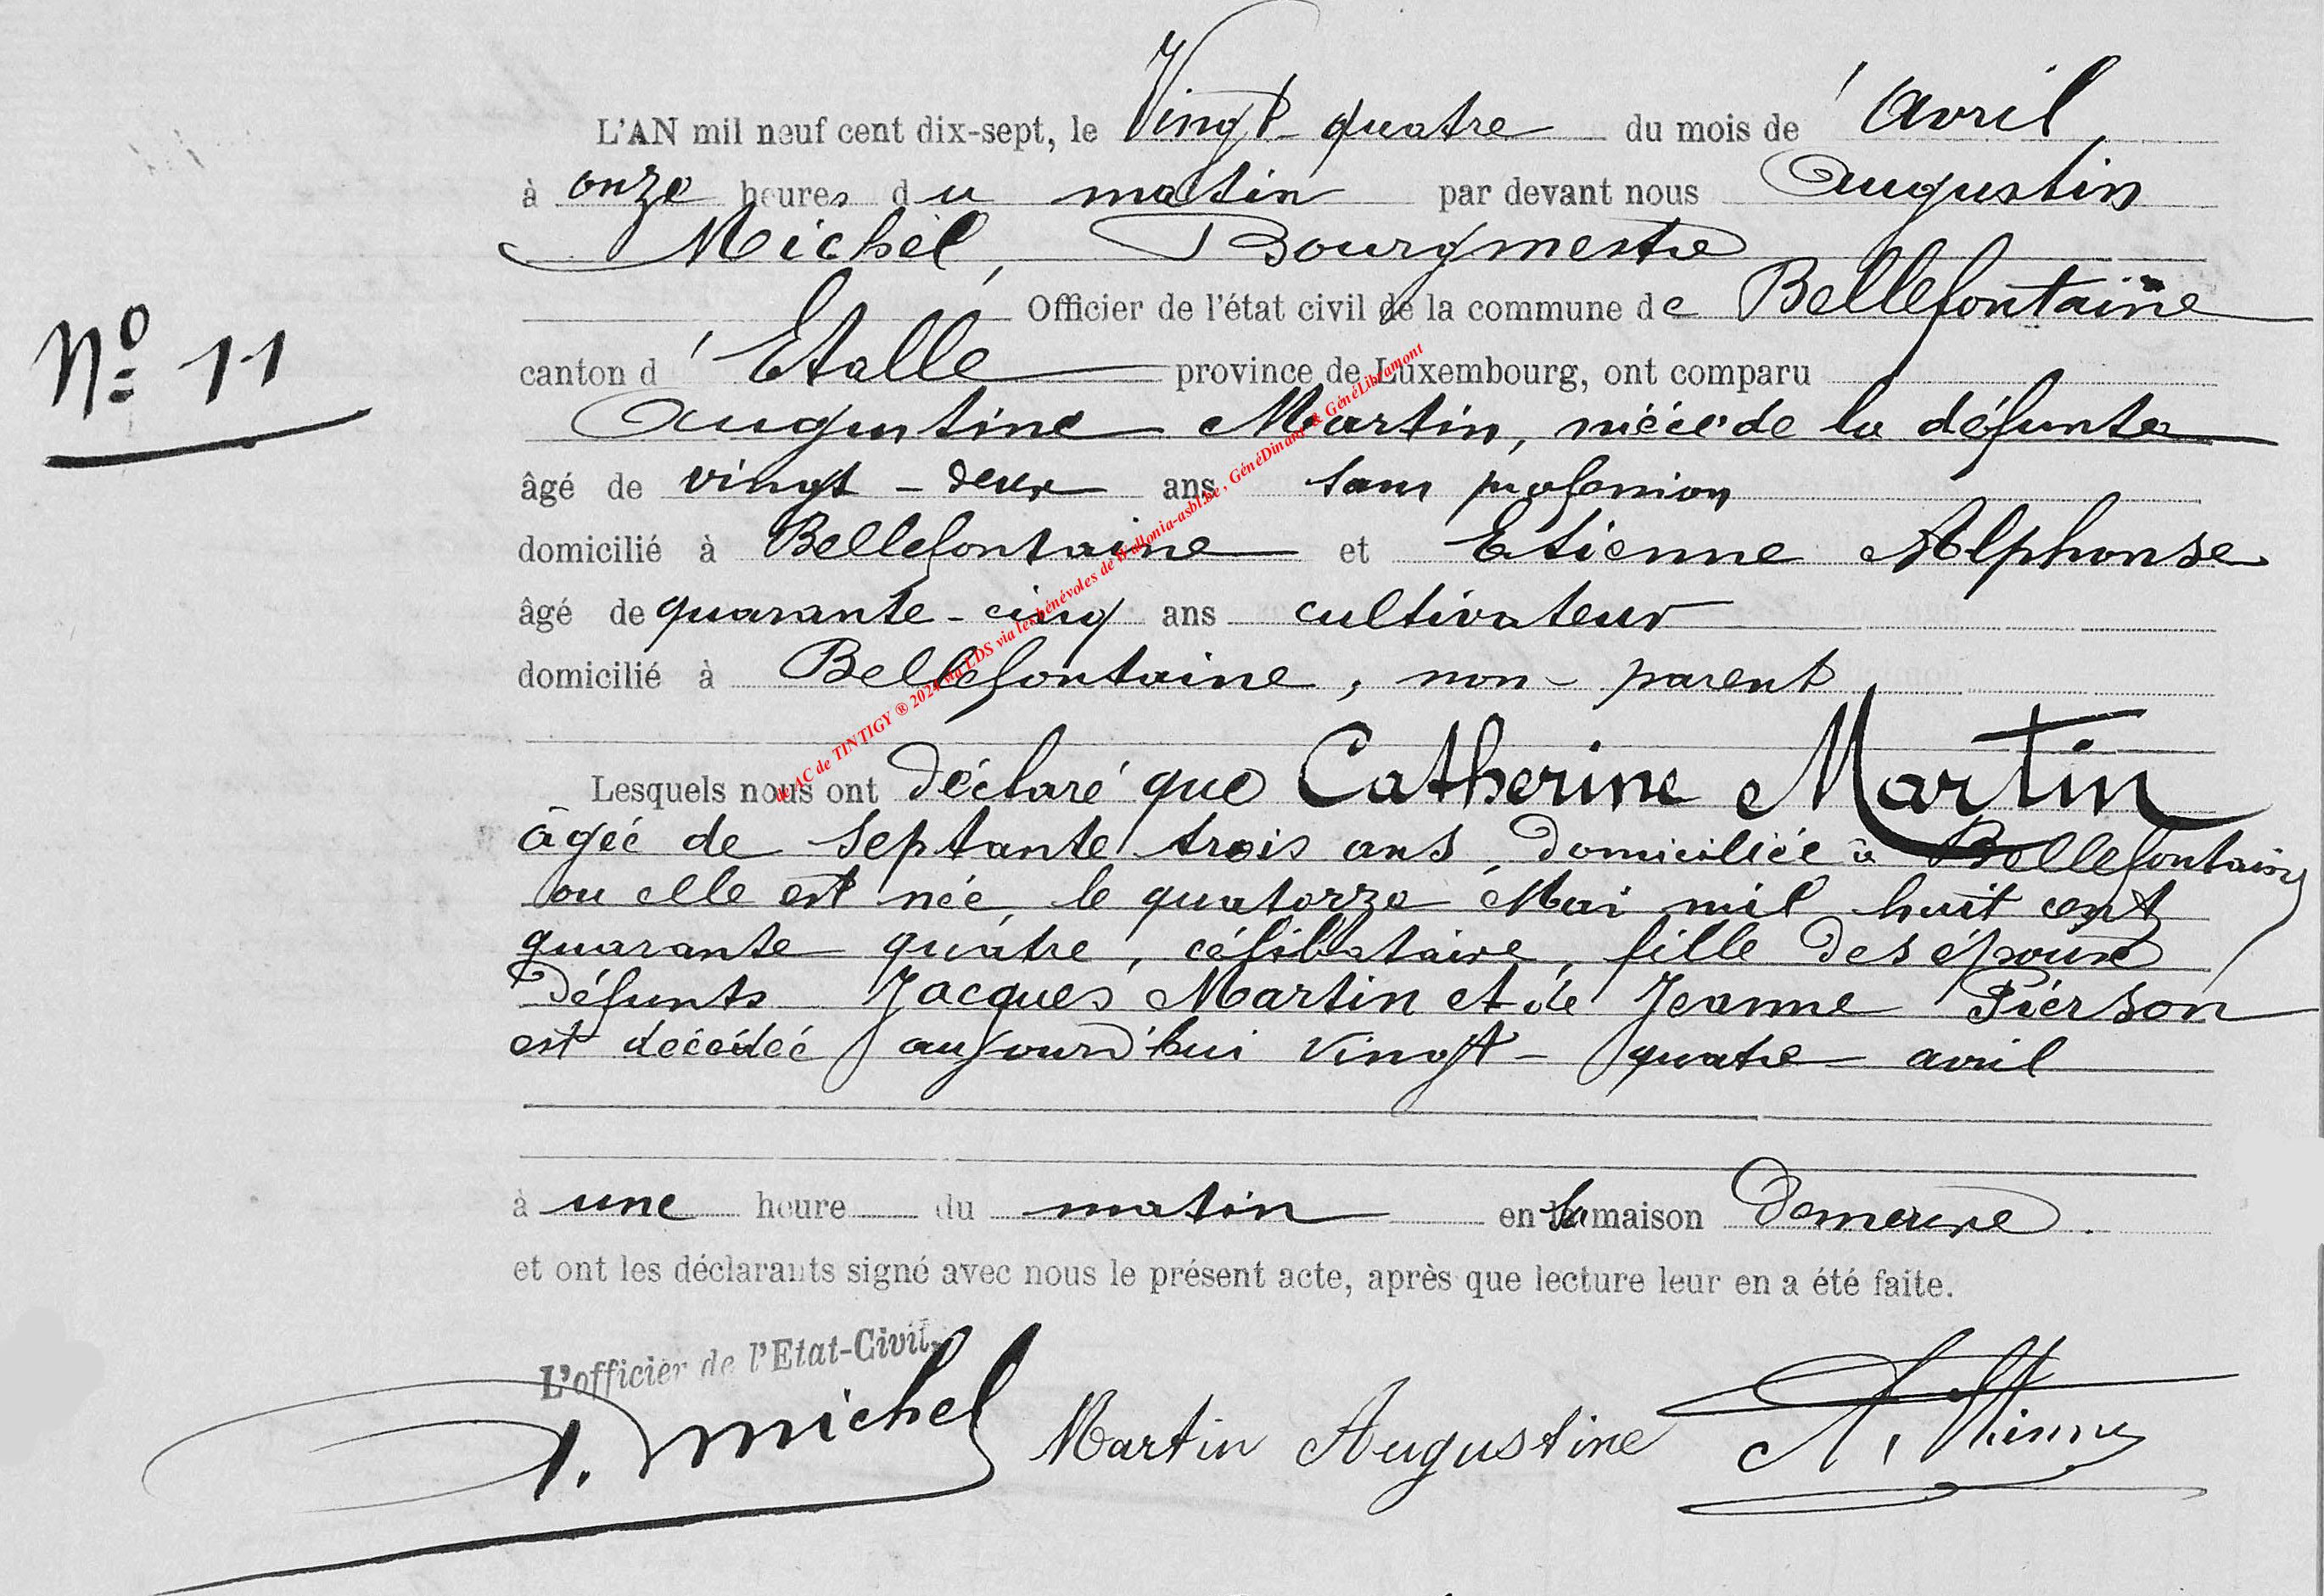 L'AN mil neuf cent dix-sept, le Vingt-quatre du mois d'Avril,
à onze heures du matin par devant nous Augustin
Michel, Bourgmestre
Officier de l'état civil de la commune de Bellefontaine
canton d'Etalle province de Luxembourg, ont comparu
Augustine Martin, nièce de la défunte
âgé de vingt-deux ans sans profession
domicilié à Bellefontaine et Etienne Alphonse
âgé de quarante-cinq ans cultivateur
domicilié à Bellefontaine, non-parent
N° 11
Lesquels nous ont déclaré que Catherine Martin
âgée de septante trois ans, domiciliée à Bellefontaine
ou elle est née, le quatorze Mai mil huit cent
quarante quatre, célibataire, fille des époux
défunts Jacques Martin et de Jeanne Pierson
est décédée aujourd'hui vingt-quatre avril
à une heure du matin en sa maison demeure.
et ont les déclarants signé avec nous le présent acte, après que lecture leur en a été faite.
L'officier de l'Etat-Civil,
A. Michel Martin Augustine A. Etienne
de AC de TINTIGY ® 2024 via LDS via les bénévoles de Wallonia-asbl.be, GénéDinant & GénéLibramont